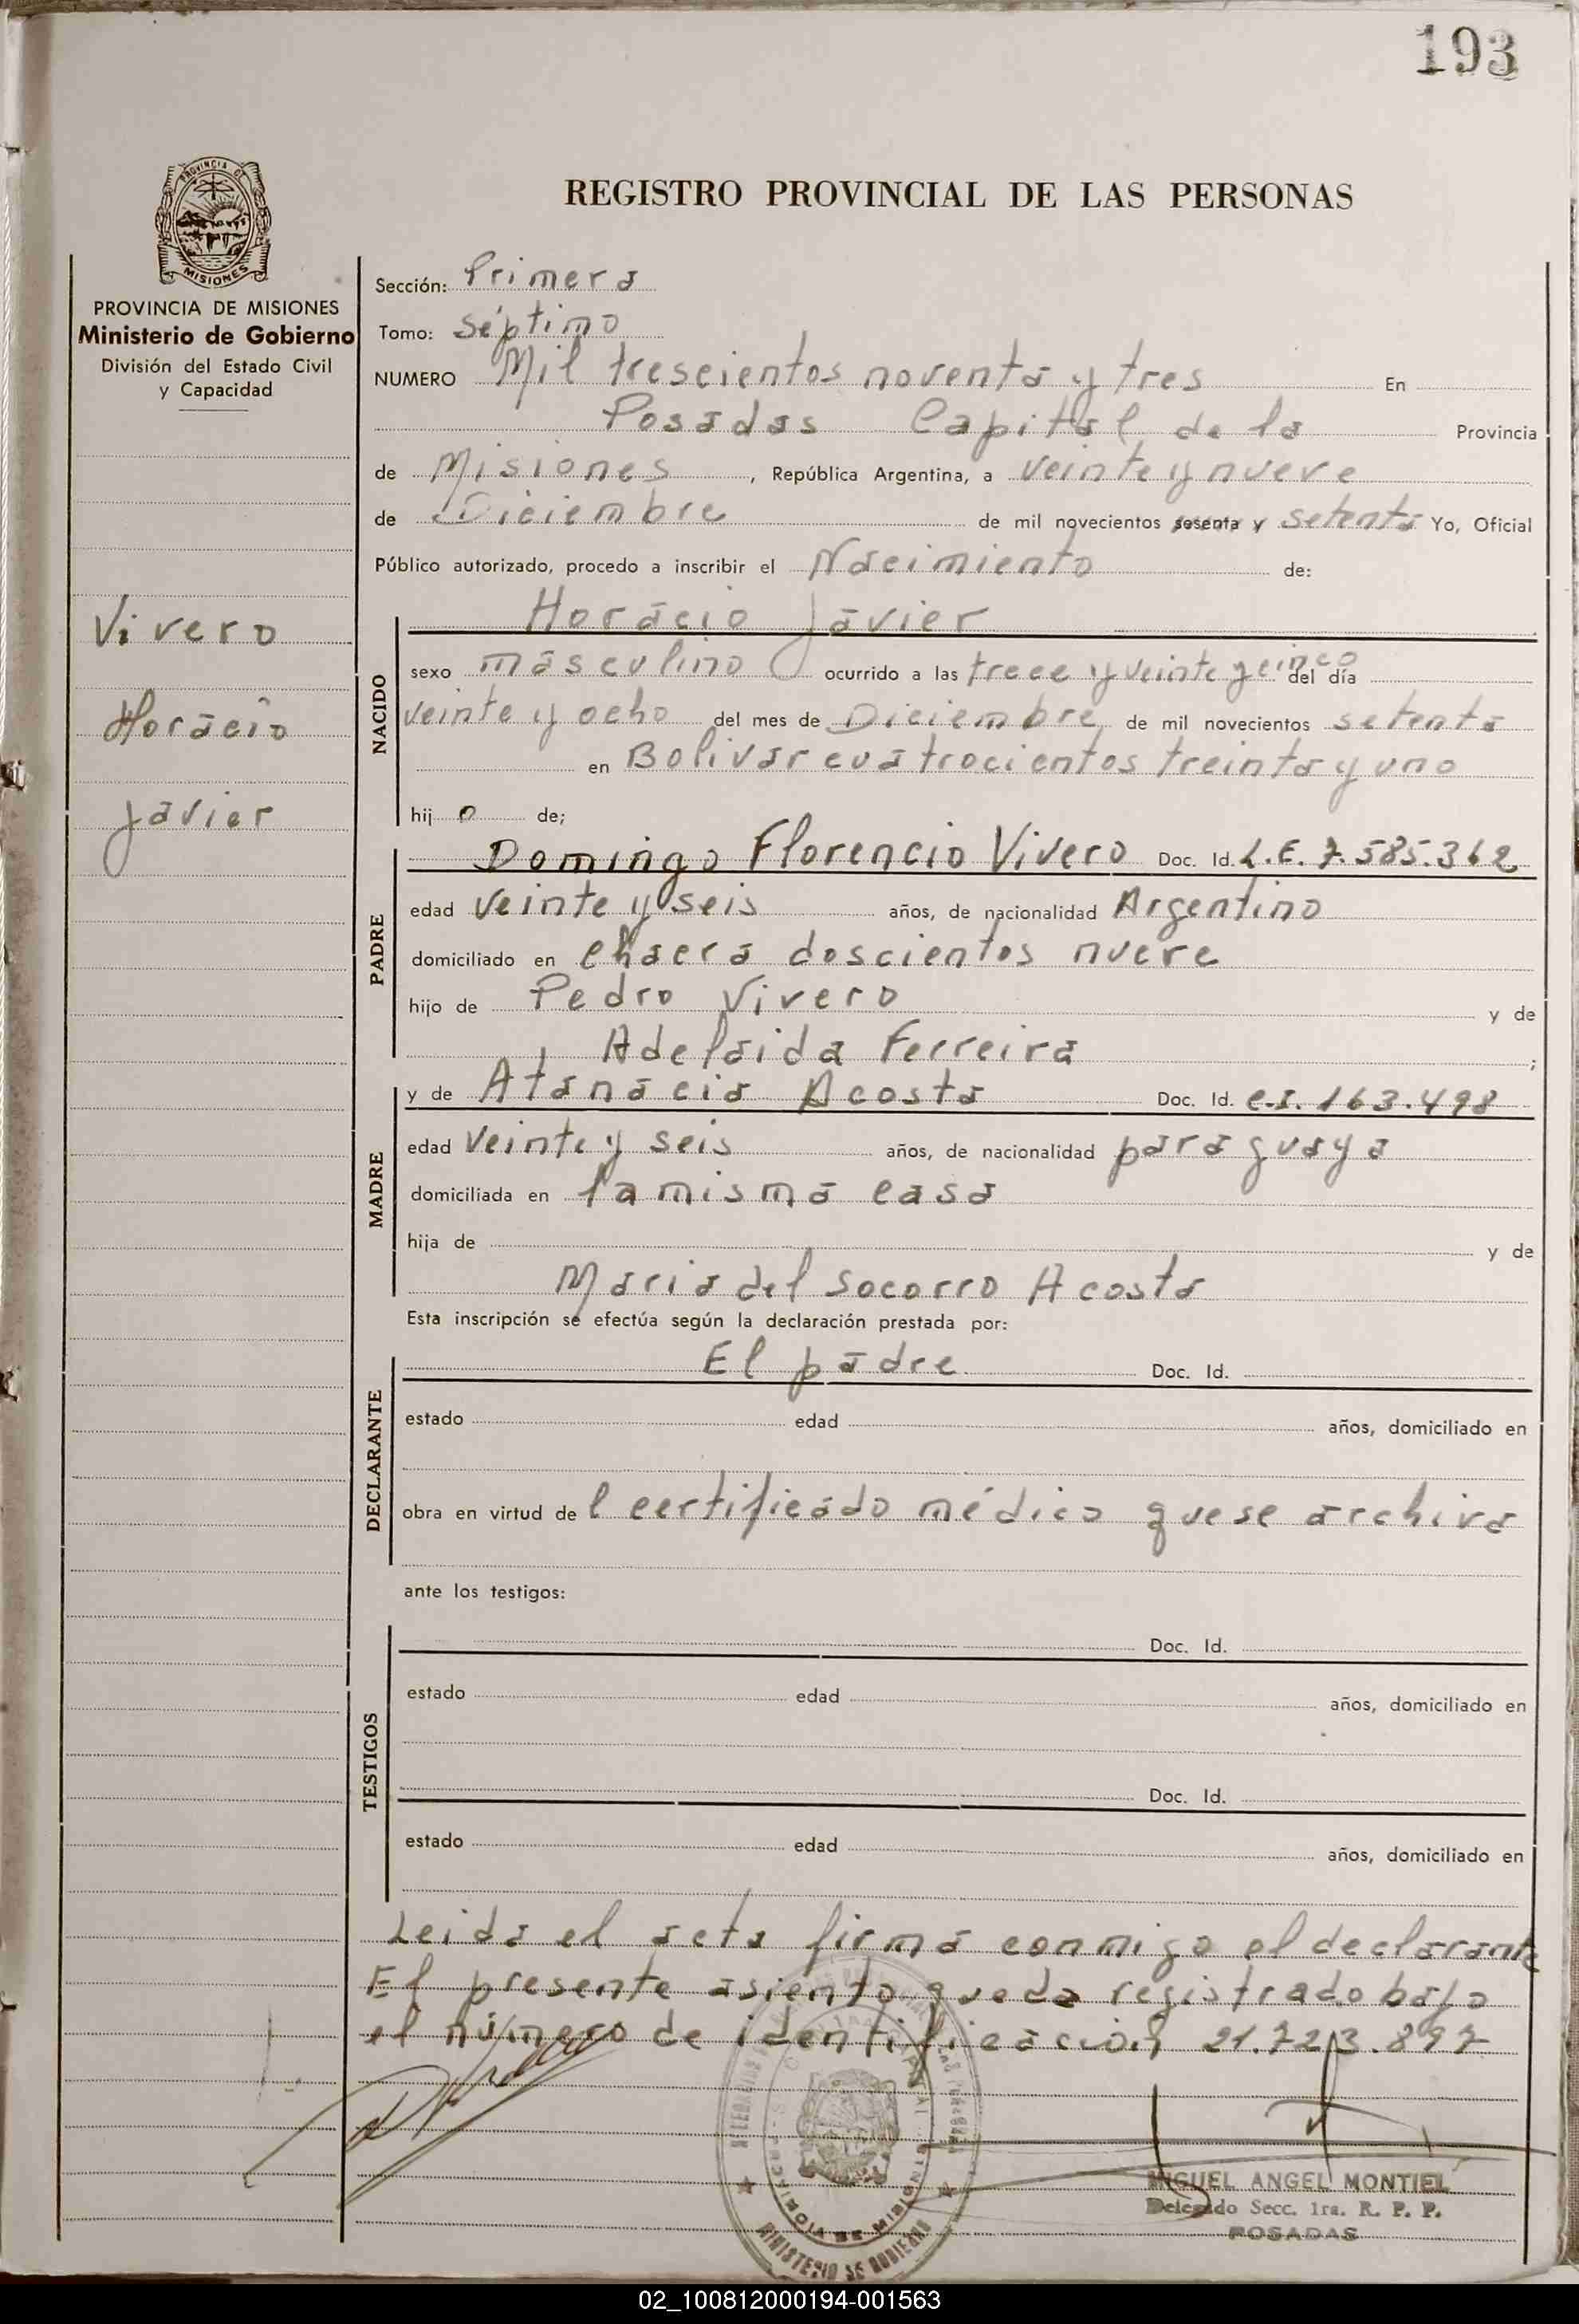 193
PROVINCIA DE
MISIONES
REGISTRO PROVINCIAL DE LAS PERSONAS
PROVINCIA DE MISIONES
Ministerio de Gobierno
División del Estado Civil
y Capacidad
Vivero
Horacio
Javier
Sección: Primera
Tomo: Séptimo
NUMERO Mil trescientos noventa y tres En
Posadas Capital de la Provincia
de Misiones, República Argentina, a veinte y nueve
de Diciembre de mil novecientos sesenta y setenta Yo, Oficial
Público autorizado, procedo a inscribir el Nacimiento de:
NACIDO
Horacio Javier
sexo masculino ocurrido a las trece y veinte y cinco del día
veinte y ocho del mes de Diciembre de mil novecientos setenta
en Bolivar cuatrocientos treinta y uno
hij o de;
PADRE
Domingo Florencio Vivero Doc. Id. L.E. 7.585.362
edad veinte y seis años, de nacionalidad Argentino
domiciliado en chacra doscientos nueve
hijo de Pedro Vivero y de
Adelaida Ferreira ;
MADRE
y de Atanacia Acosta Doc. Id. C.I. 163.498
edad veinte y seis años, de nacionalidad paraguaya
domiciliada en la misma casa
hija de y de
Maria del Socorro Acosta
Esta inscripción se efectúa según la declaración prestada por:
DECLARANTE
El padre Doc. Id.
estado edad años, domiciliado en
obra en virtud de l certificado médico que se archiva
ante los testigos:
TESTIGOS
Doc. Id.
estado edad años, domiciliado en
Doc. Id.
estado edad años, domiciliado en
Leida el acta firma conmigo el declarante
El presente asiento queda registrado bajo
el número de identificación 21.723.897
PROVINCIA DE MISIONES
MINISTERIO DE GOBIERNO
MIGUEL ANGEL MONTIEL
Delegado Secc. 1ra. R. P. P.
POSADAS
02_100812000194-001563